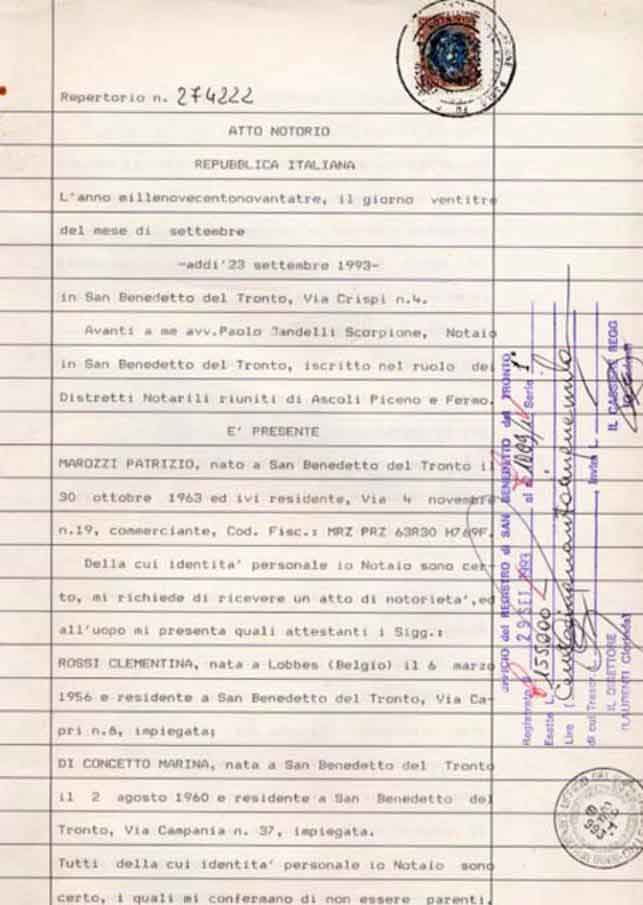 Repertorio n. 274222
ATTO NOTORIO
REPUBBLICA ITALIANA
L'anno millenovecentonovantatre, il giorno ventitre
del mese di settembre
-addi'23 settembre 1993-
in San Benedetto del Tronto, Via Crispi n.4.
Avanti a me avv.Paolo Jandelli Scorpione, Notaio
in San Benedetto del Tronto, iscritto nel ruolo dei
Distretti Notarili riuniti di Ascoli Piceno e Fermo.
E' PRESENTE
MAROZZI PATRIZIO, nato a San Benedetto del Tronto il
30 ottobre 1963 ed ivi residente, Via 4 novembre
n.19, commerciante, Cod. Fisc.: MRZ PRZ 63R30 H769F.
Della cui identita' personale io Notaio sono cer-
to, mi richiede di ricevere un atto di notorieta',ed
all'uopo mi presenta quali attestanti i Sigg.:
ROSSI CLEMENTINA, nata a Lobbes (Belgio) il 6 marzo
1956 e residente a San Benedetto del Tronto, Via Ca-
pri n.8, impiegata;
DI CONCETTO MARINA, nata a San Benedetto del Tronto
il 2 agosto 1960 e residente a San Benedetto del
Tronto, Via Campania n. 37, impiegata.
Tutti della cui identita' personale io Notaio sono
certo, i quali mi confermano di non essere parenti,
UFFICIO del REGISTRO di SAN BENEDETTO del TRONTO
Registrato 29 SET. 1993 al Serie 1
Esatte L. 155.000
Lire
di cui Trascr. Invim L.
IL DIRETTORE IL CASSIERE REGG